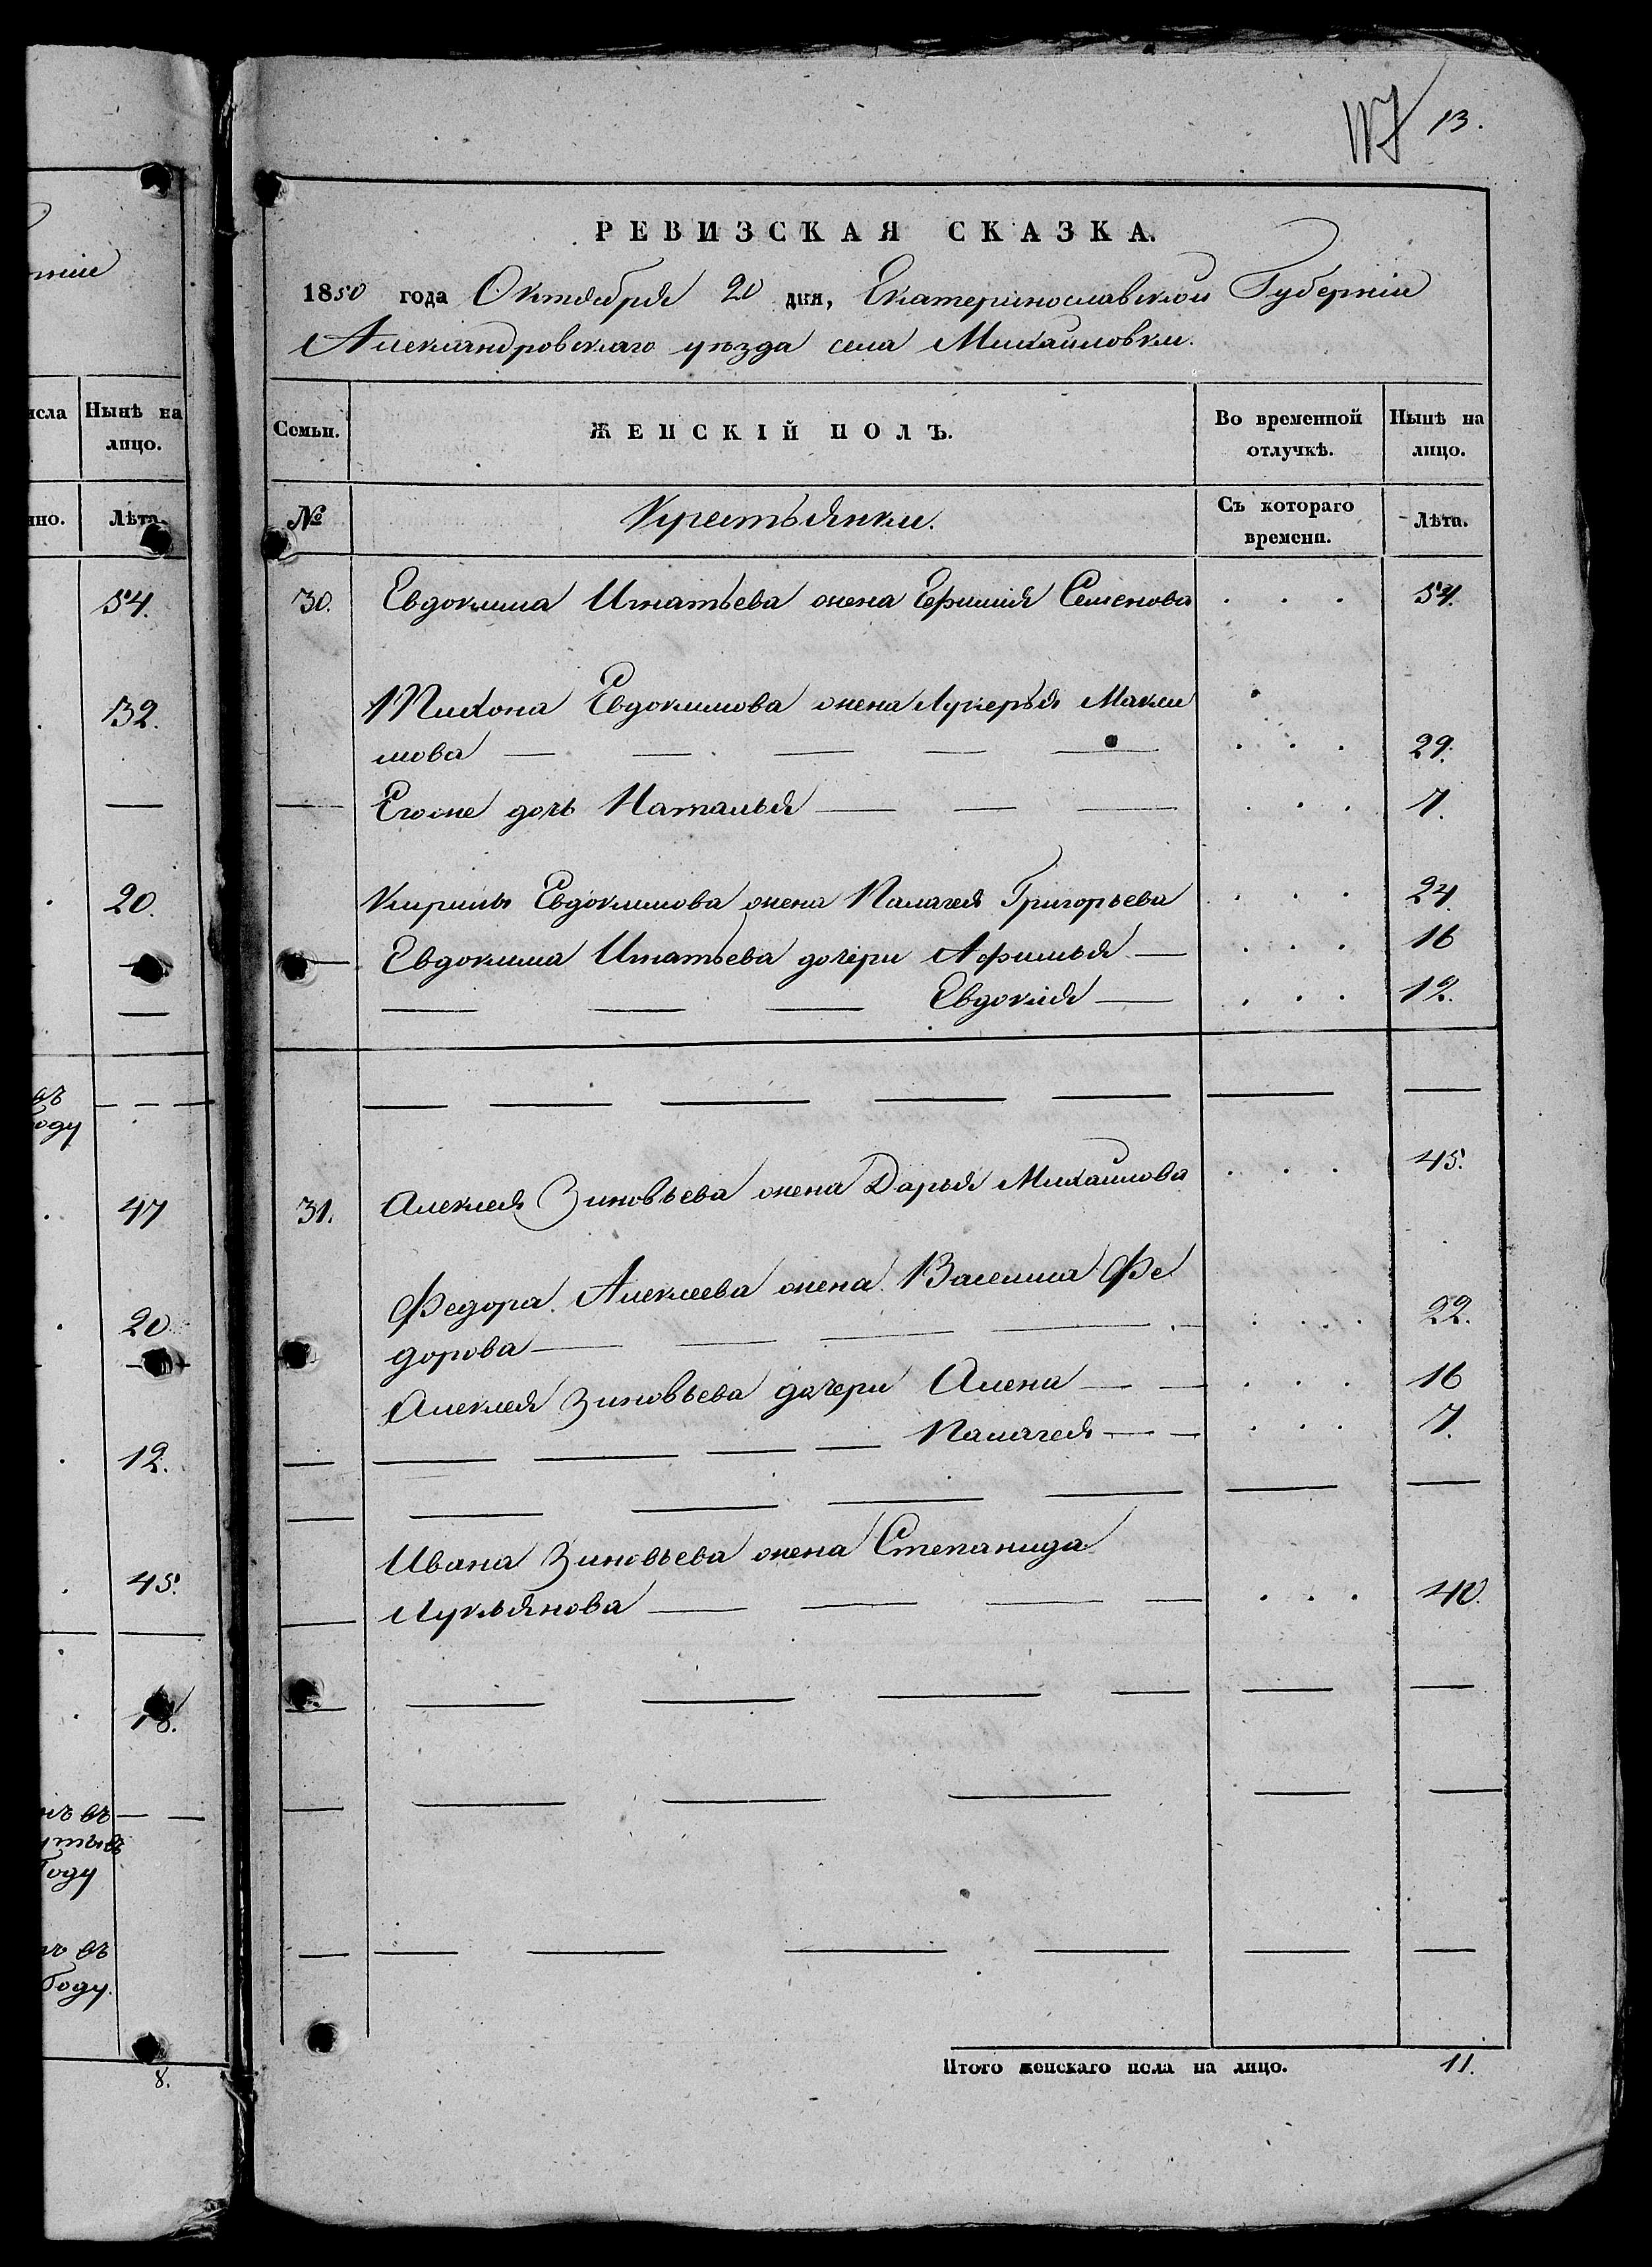 13.
РЕВИЗСКАЯ СКАЗКА.
1850 года Октября 20 дня, Екатеринославской Губерніи
Александровскаго уѣзда села Михайловки.
исла Нынѣ на лицо.
нно. Лѣта.
54.
32.
20.
въ
году
47
20
12.
45.
18.
нъ въ
году
въ
году.
8.
Семьи. ЖЕНСКІЙ ПОЛЪ. Во временной отлучкѣ. Нынѣ на лицо.
№ Крестьянки. Съ котораго времени. Лѣта.
30. Евдокима Игнатьева жена Ефимія Семенова . . . 54.
Тихона Евдокимова жена Лукерья Макси
мова — — — — — . . . 29.
— Егоже дочь Наталья — — — . . . 7.
Кирилы Евдокимова жена Палагея Григорьева . . . 24.
— Евдокима Игнатьева дочери Афимья — . . . 16
— — — Евдокія — . . . 12.
31. Алексея Зиновьева жена Дарья Михайлова . . . 45.
Федора Алексеева жена Василиса Фе
дорова — — — — . . . 22.
Алексея Зиновьева дочери Алена — — . . . 16
— — — — — Палагея — — . . . 7.
Ивана Зиновьева жена Степанида
Лукьянова — — — — . . . 40.
Итого женскаго пола на лицо. 11.